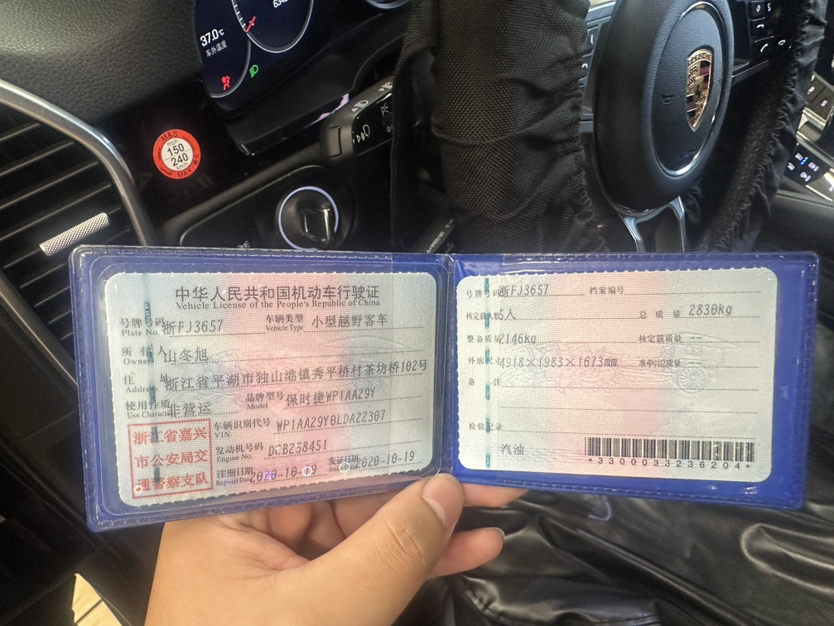 37.0℃
车外温度
M&S
150
240
MAX
中华人民共和国机动车行驶证
Vehicle License of the People's Republic of China
号牌号码 浙FJ3657 车辆类型 小型越野客车
Plate No. Vehicle Type
所有人 山冬旭
Owner
住址 浙江省平湖市独山港镇秀平桥村茶坊桥102号
使用性质 非营运 品牌型号 保时捷WP1AA29Y
Use Character Model
浙江省嘉兴
市公安局交
通警察支队
车辆识别代号 WP1AA29Y0LDA22307
VIN
发动机号码 DCB258451
Engine No.
注册日期 2020-10-19 发证日期 2020-10-19
号牌号码 浙FJ3657 档案编号
核定载人数 5人 总质量 2830kg
整备质量 2146kg 核定载质量 --
外廓尺寸 4918×1983×1673mm 准牵引总质量
备注
检验记录
汽油
*3300033236204*